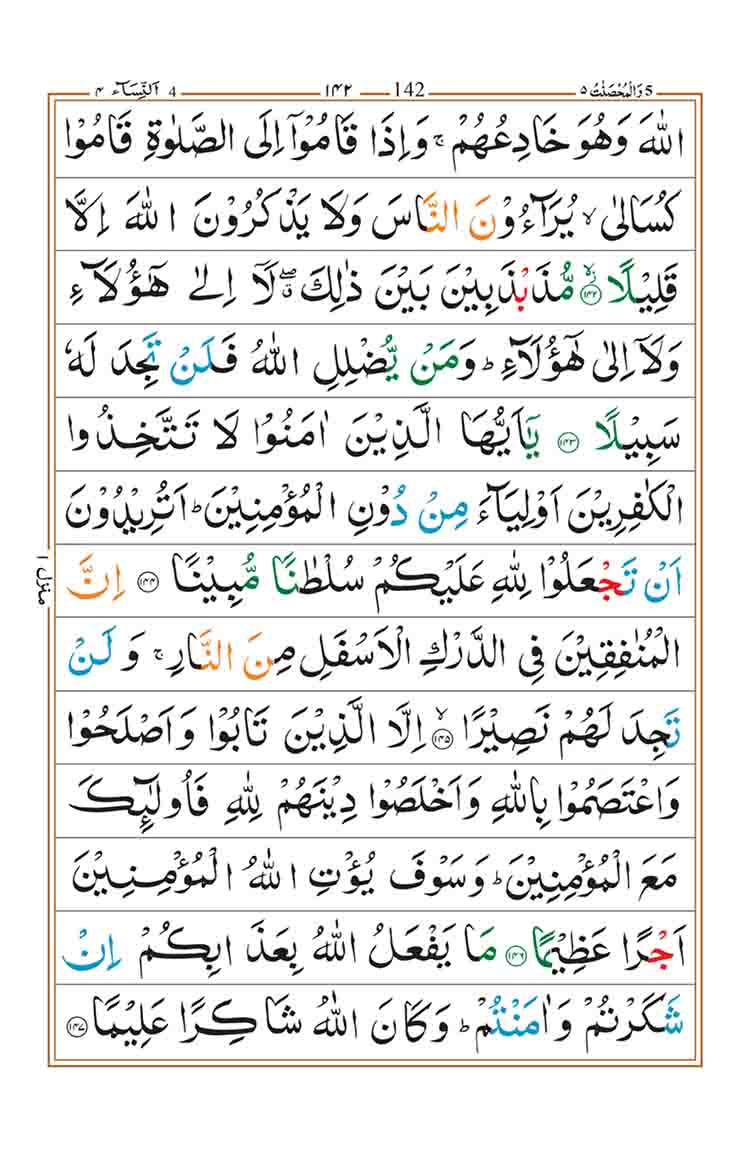 ٤ اَلنِّسَآء 4 ١٤٢ 142 وَالْمُحْصَنٰتُ ٥ 5
اللّٰهَ وَهُوَ خَادِعُهُمْ ۚ وَاِذَا قَامُوْۤا اِلَى الصَّلٰوةِ قَامُوْا
كُسَالٰى ۙ يُرَآءُوْنَ النَّاسَ وَلَا يَذْكُرُوْنَ اللّٰهَ اِلَّا
قَلِيْلًا ۙ﴿١٤٢﴾ مُّذَبْذَبِيْنَ بَيْنَ ذٰلِكَ ۖ لَاۤ اِلٰى هٰٓؤُلَآءِ
وَلَاۤ اِلٰى هٰٓؤُلَآءِ ؕ وَمَنْ يُّضْلِلِ اللّٰهُ فَلَنْ تَجِدَ لَهٗ
سَبِيْلًا ﴿١٤٣﴾ يٰۤاَيُّهَا الَّذِيْنَ اٰمَنُوْا لَا تَتَّخِذُوا
الْكٰفِرِيْنَ اَوْلِيَآءَ مِنْ دُوْنِ الْمُؤْمِنِيْنَ ؕ اَتُرِيْدُوْنَ
اَنْ تَجْعَلُوْا لِلّٰهِ عَلَيْكُمْ سُلْطٰنًا مُّبِيْنًا ﴿١٤٤﴾ اِنَّ
الْمُنٰفِقِيْنَ فِى الدَّرْكِ الْاَسْفَلِ مِنَ النَّارِ ۚ وَلَنْ
تَجِدَ لَهُمْ نَصِيْرًا ۙ﴿١٤٥﴾ اِلَّا الَّذِيْنَ تَابُوْا وَاَصْلَحُوْا
وَاعْتَصَمُوْا بِاللّٰهِ وَاَخْلَصُوْا دِيْنَهُمْ لِلّٰهِ فَاُولٰٓئِكَ
مَعَ الْمُؤْمِنِيْنَ ؕ وَسَوْفَ يُؤْتِ اللّٰهُ الْمُؤْمِنِيْنَ
اَجْرًا عَظِيْمًا ﴿١٤٦﴾ مَا يَفْعَلُ اللّٰهُ بِعَذَابِكُمْ اِنْ
شَكَرْتُمْ وَاٰمَنْتُمْ ؕ وَكَانَ اللّٰهُ شَاكِرًا عَلِيْمًا ﴿١٤٧﴾
منزل ١